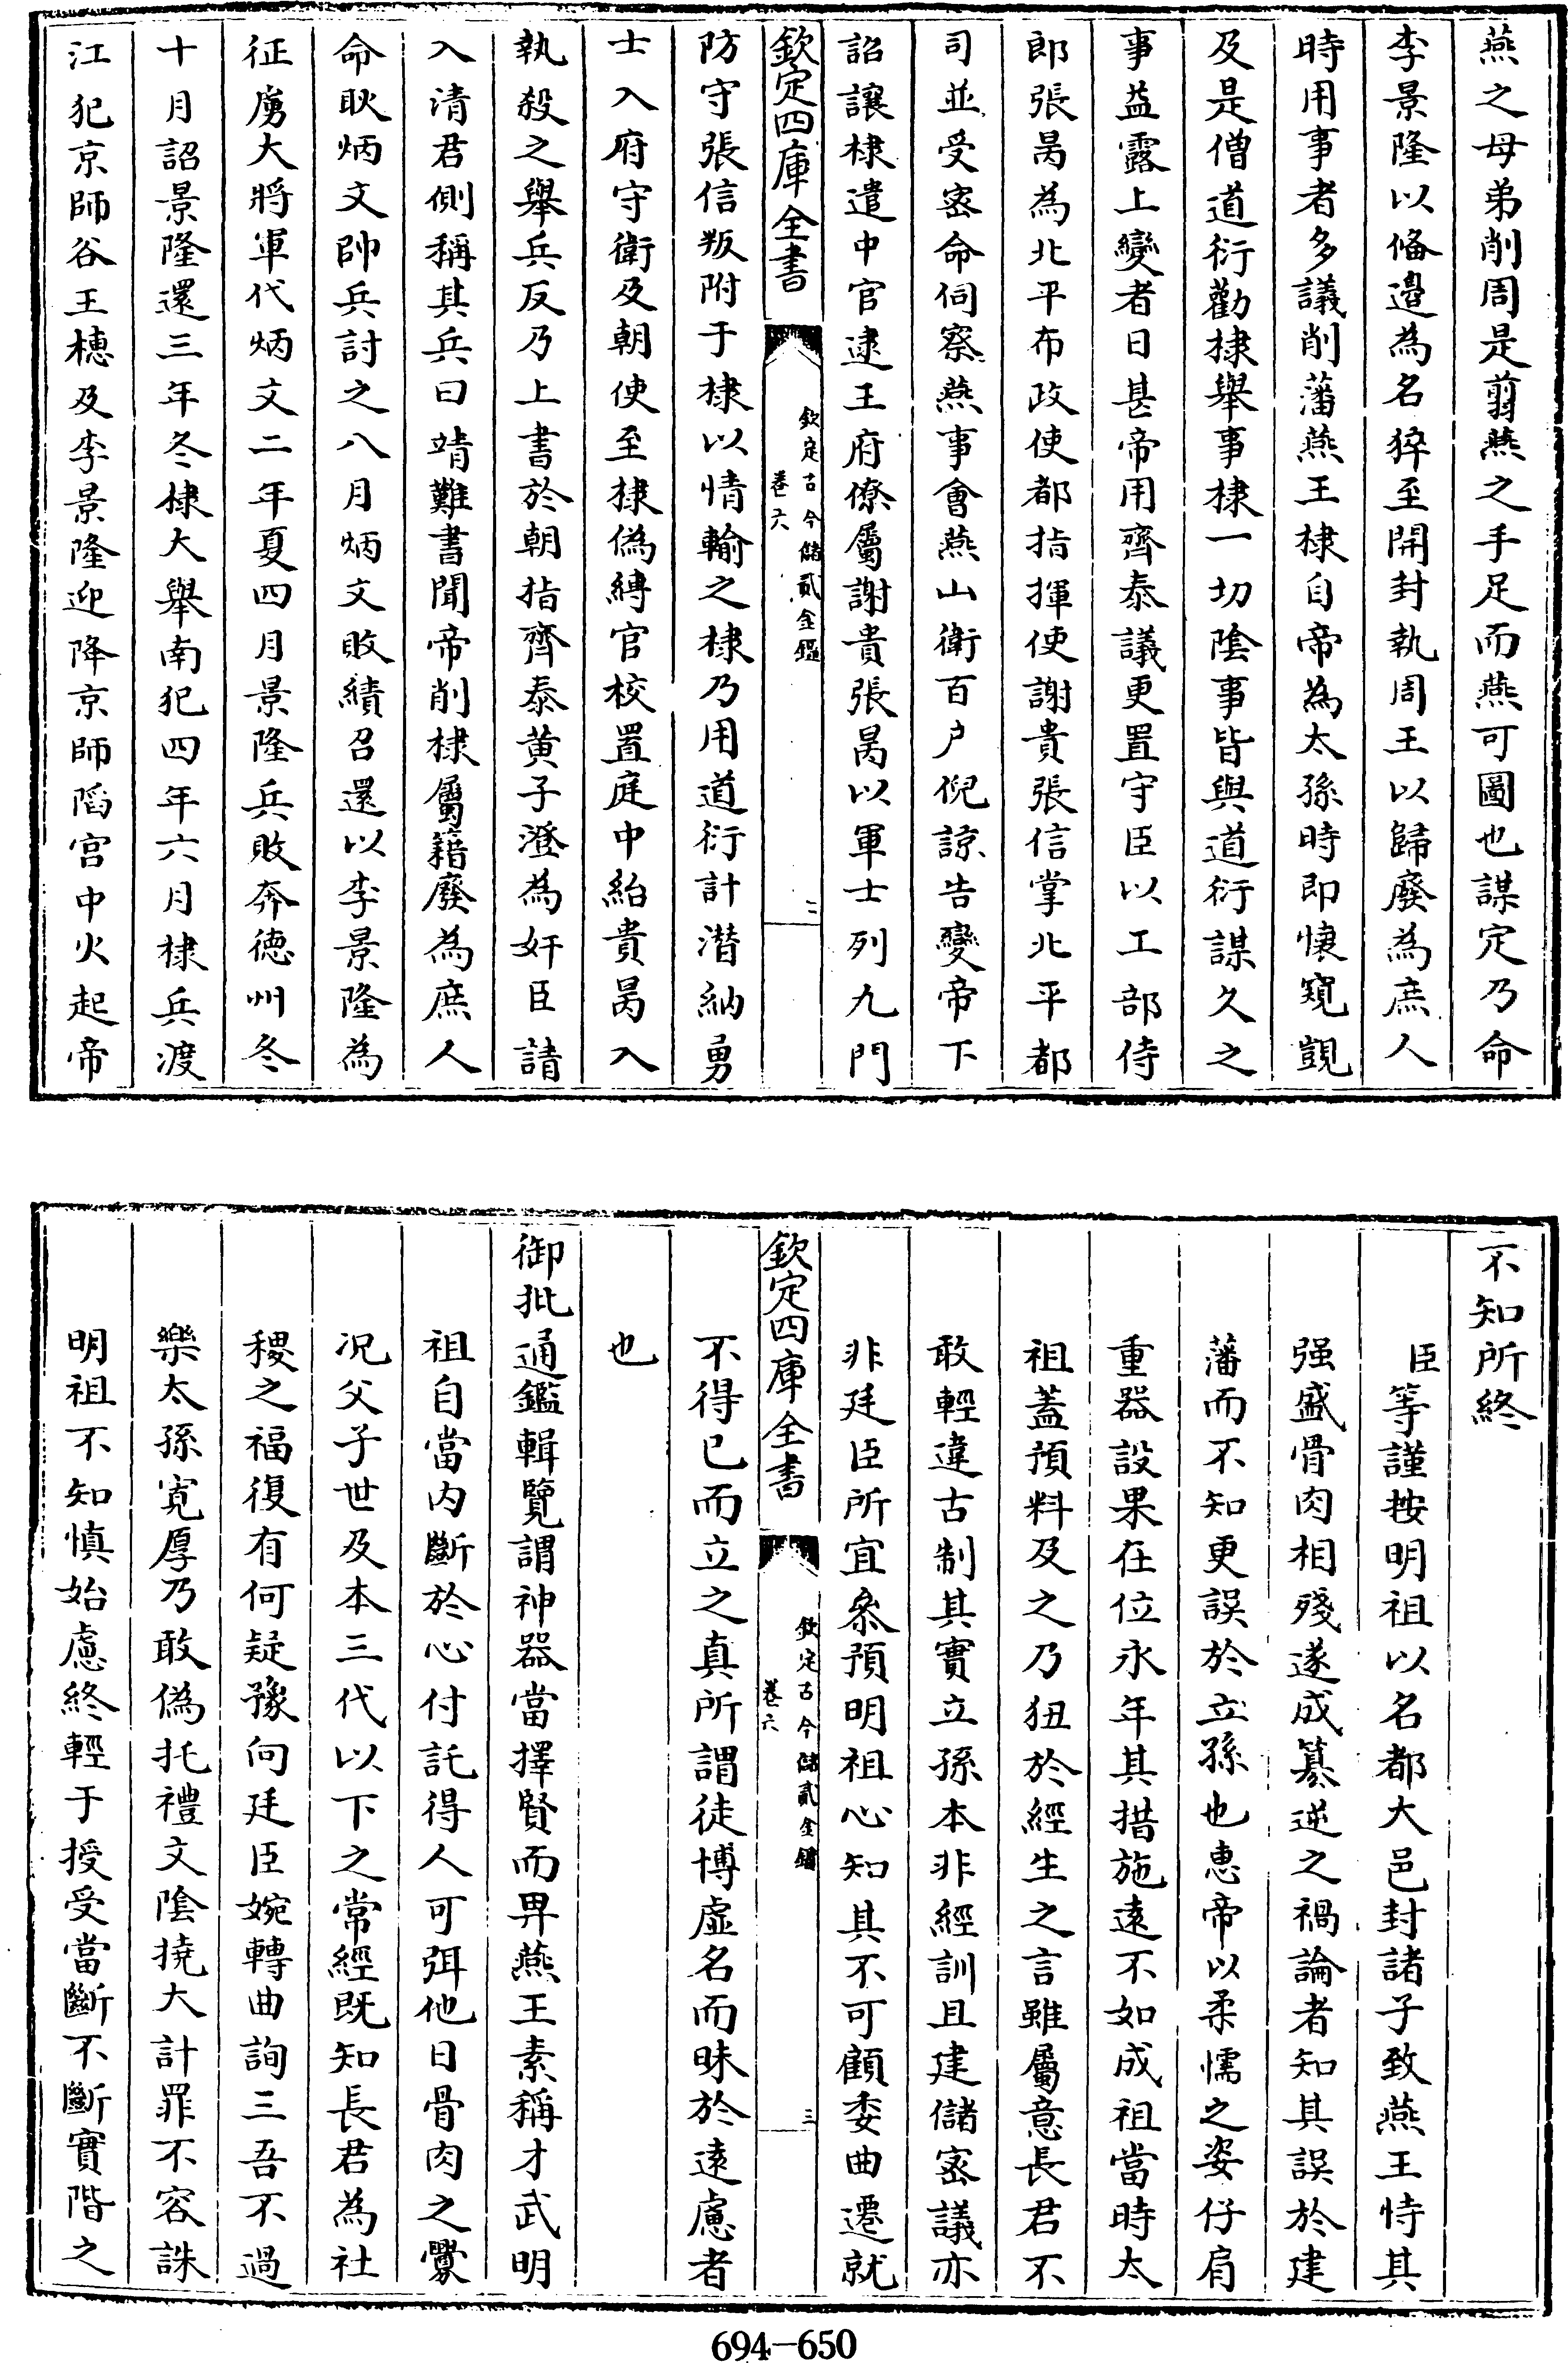 燕之母弟削周是翦燕之手足而燕可圖也謀定乃命
李景隆以俻邉為名猝至開封執周王以歸廢為庶人
時用事者多議削藩燕王棣自帝為太孫時即懐窺覬
及是僧道衍勸棣舉事棣一切陰事皆與道衍謀久之
事益露上變者日甚帝用齊泰議更置守臣以工部侍
郎張昺為北平布政使都指揮使謝貴張信掌北平都
司並受宻命伺察燕事會燕山衛百户倪諒告變帝下
詔讓棣遣中官逮王府僚屬謝貴張昺以軍士列九門
欽定四庫全書
欽定古今儲貳金鑑
卷六
二
防守張信叛附于棣以情輸之棣乃用道衍計潛納勇
士入府守衛及朝使至棣偽縛官校置庭中紿貴昺入
執殺之舉兵反乃上書於朝指齊泰黄子澄為奸臣請
入清君側稱其兵曰靖難書聞帝削棣屬籍廢為庶人
命耿炳文帥兵討之八月炳文敗績召還以李景隆為
征虜大將軍代炳文二年夏四月景隆兵敗奔徳州冬
十月詔景隆還三年冬棣大舉南犯四年六月棣兵渡
江犯京師谷王橞及李景隆迎降京師䧟宫中火起帝
不知所終
臣等謹按明祖以名都大邑封諸子致燕王恃其
强盛骨肉相殘遂成簒逆之禍論者知其誤於建
藩而不知更誤於立孫也惠帝以柔懦之姿仔肩
重器設果在位永年其措施逺不如成祖當時太
祖蓋預料及之乃狃於經生之言雖屬意長君不
敢輕違古制其實立孫本非經訓且建儲宻議亦
非廷臣所宜叅預明祖心知其不可顧委曲遷就
欽定四庫全書
欽定古今儲貳金鑑
卷六
三
不得已而立之真所謂徒博虛名而昧於逺慮者
也
御批通鑑輯覽謂神器當擇賢而畀燕王素稱才武明
祖自當内斷於心付託得人可弭他日骨肉之釁
况父子世及本三代以下之常經既知長君為社
稷之福復有何疑豫向廷臣婉轉曲詢三吾不過
樂太孫寛厚乃敢偽托禮文陰撓大計罪不容誅
明祖不知慎始慮終輕于授受當斷不斷實階之
694-650